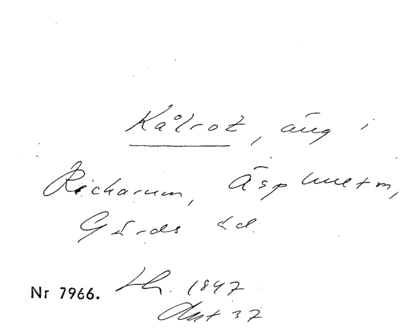 Kålrot, äng i
Rickarum, Äsphult sn,
Gärds hd.
Nr 7966. Lhr. 1847
Akt 37